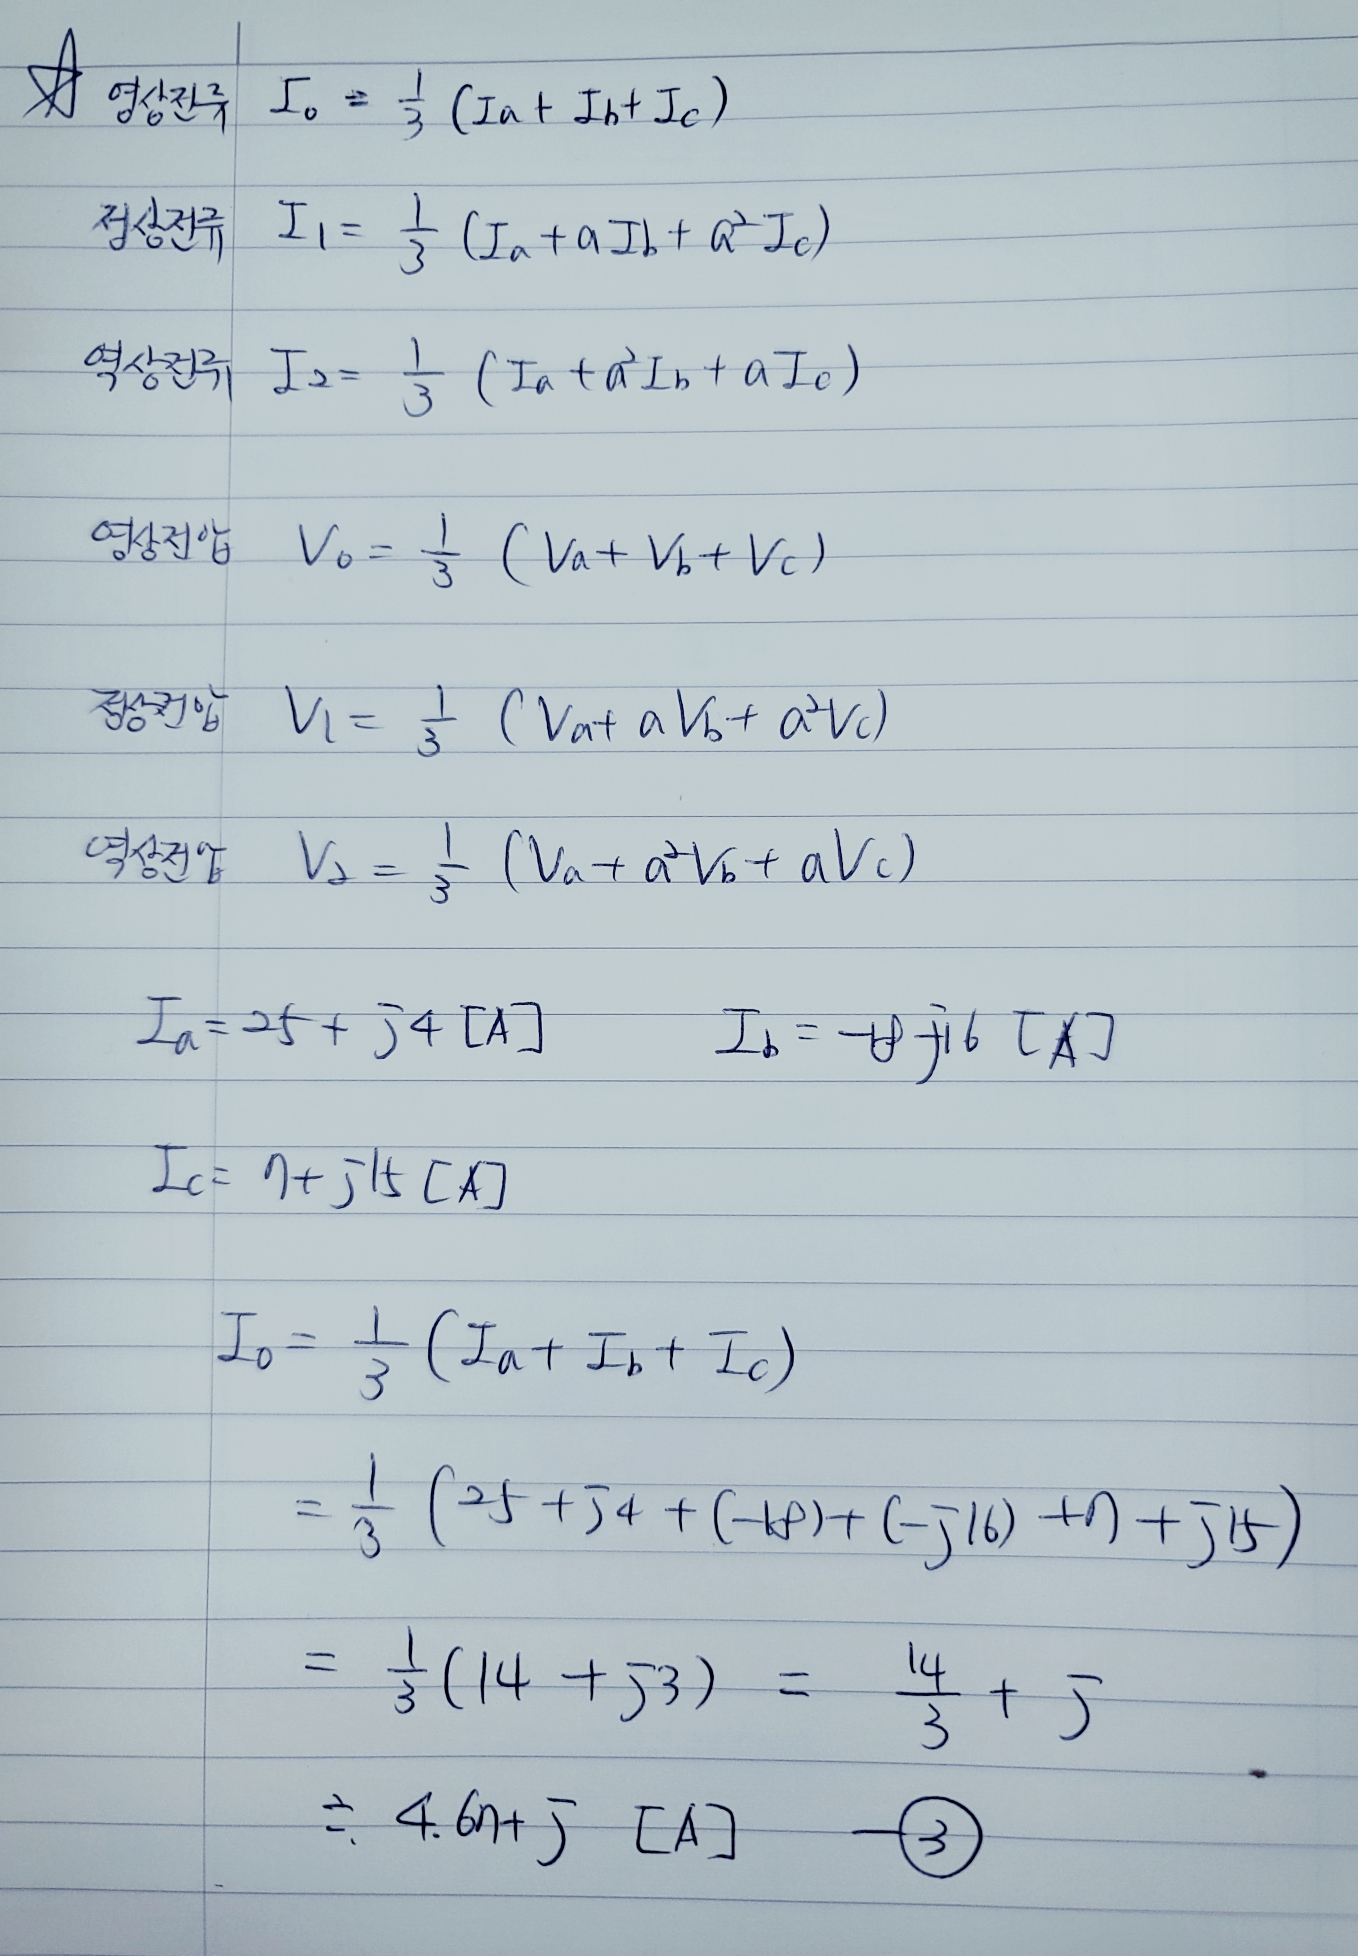 ☆ 영상전류 I₀ = 1/3 (Ia + Ib + Ic)
정상전류 I₁ = 1/3 (Ia + aIb + a²Ic)
역상전류 I₂ = 1/3 (Ia + a²Ib + aIc)
영상전압 V₀ = 1/3 (Va + Vb + Vc)
정상전압 V₁ = 1/3 (Va + aVb + a²Vc)
역상전압 V₂ = 1/3 (Va + a²Vb + aVc)
Ia = 25 + j4 [A] Ib = -18 - j16 [A]
Ic = 7 + j15 [A]
I₀ = 1/3 (Ia + Ib + Ic)
= 1/3 (25 + j4 + (-18) + (-j16) + 7 + j15)
= 1/3 (14 + j3) = 14/3 + j
≒ 4.67 + j [A] - ③